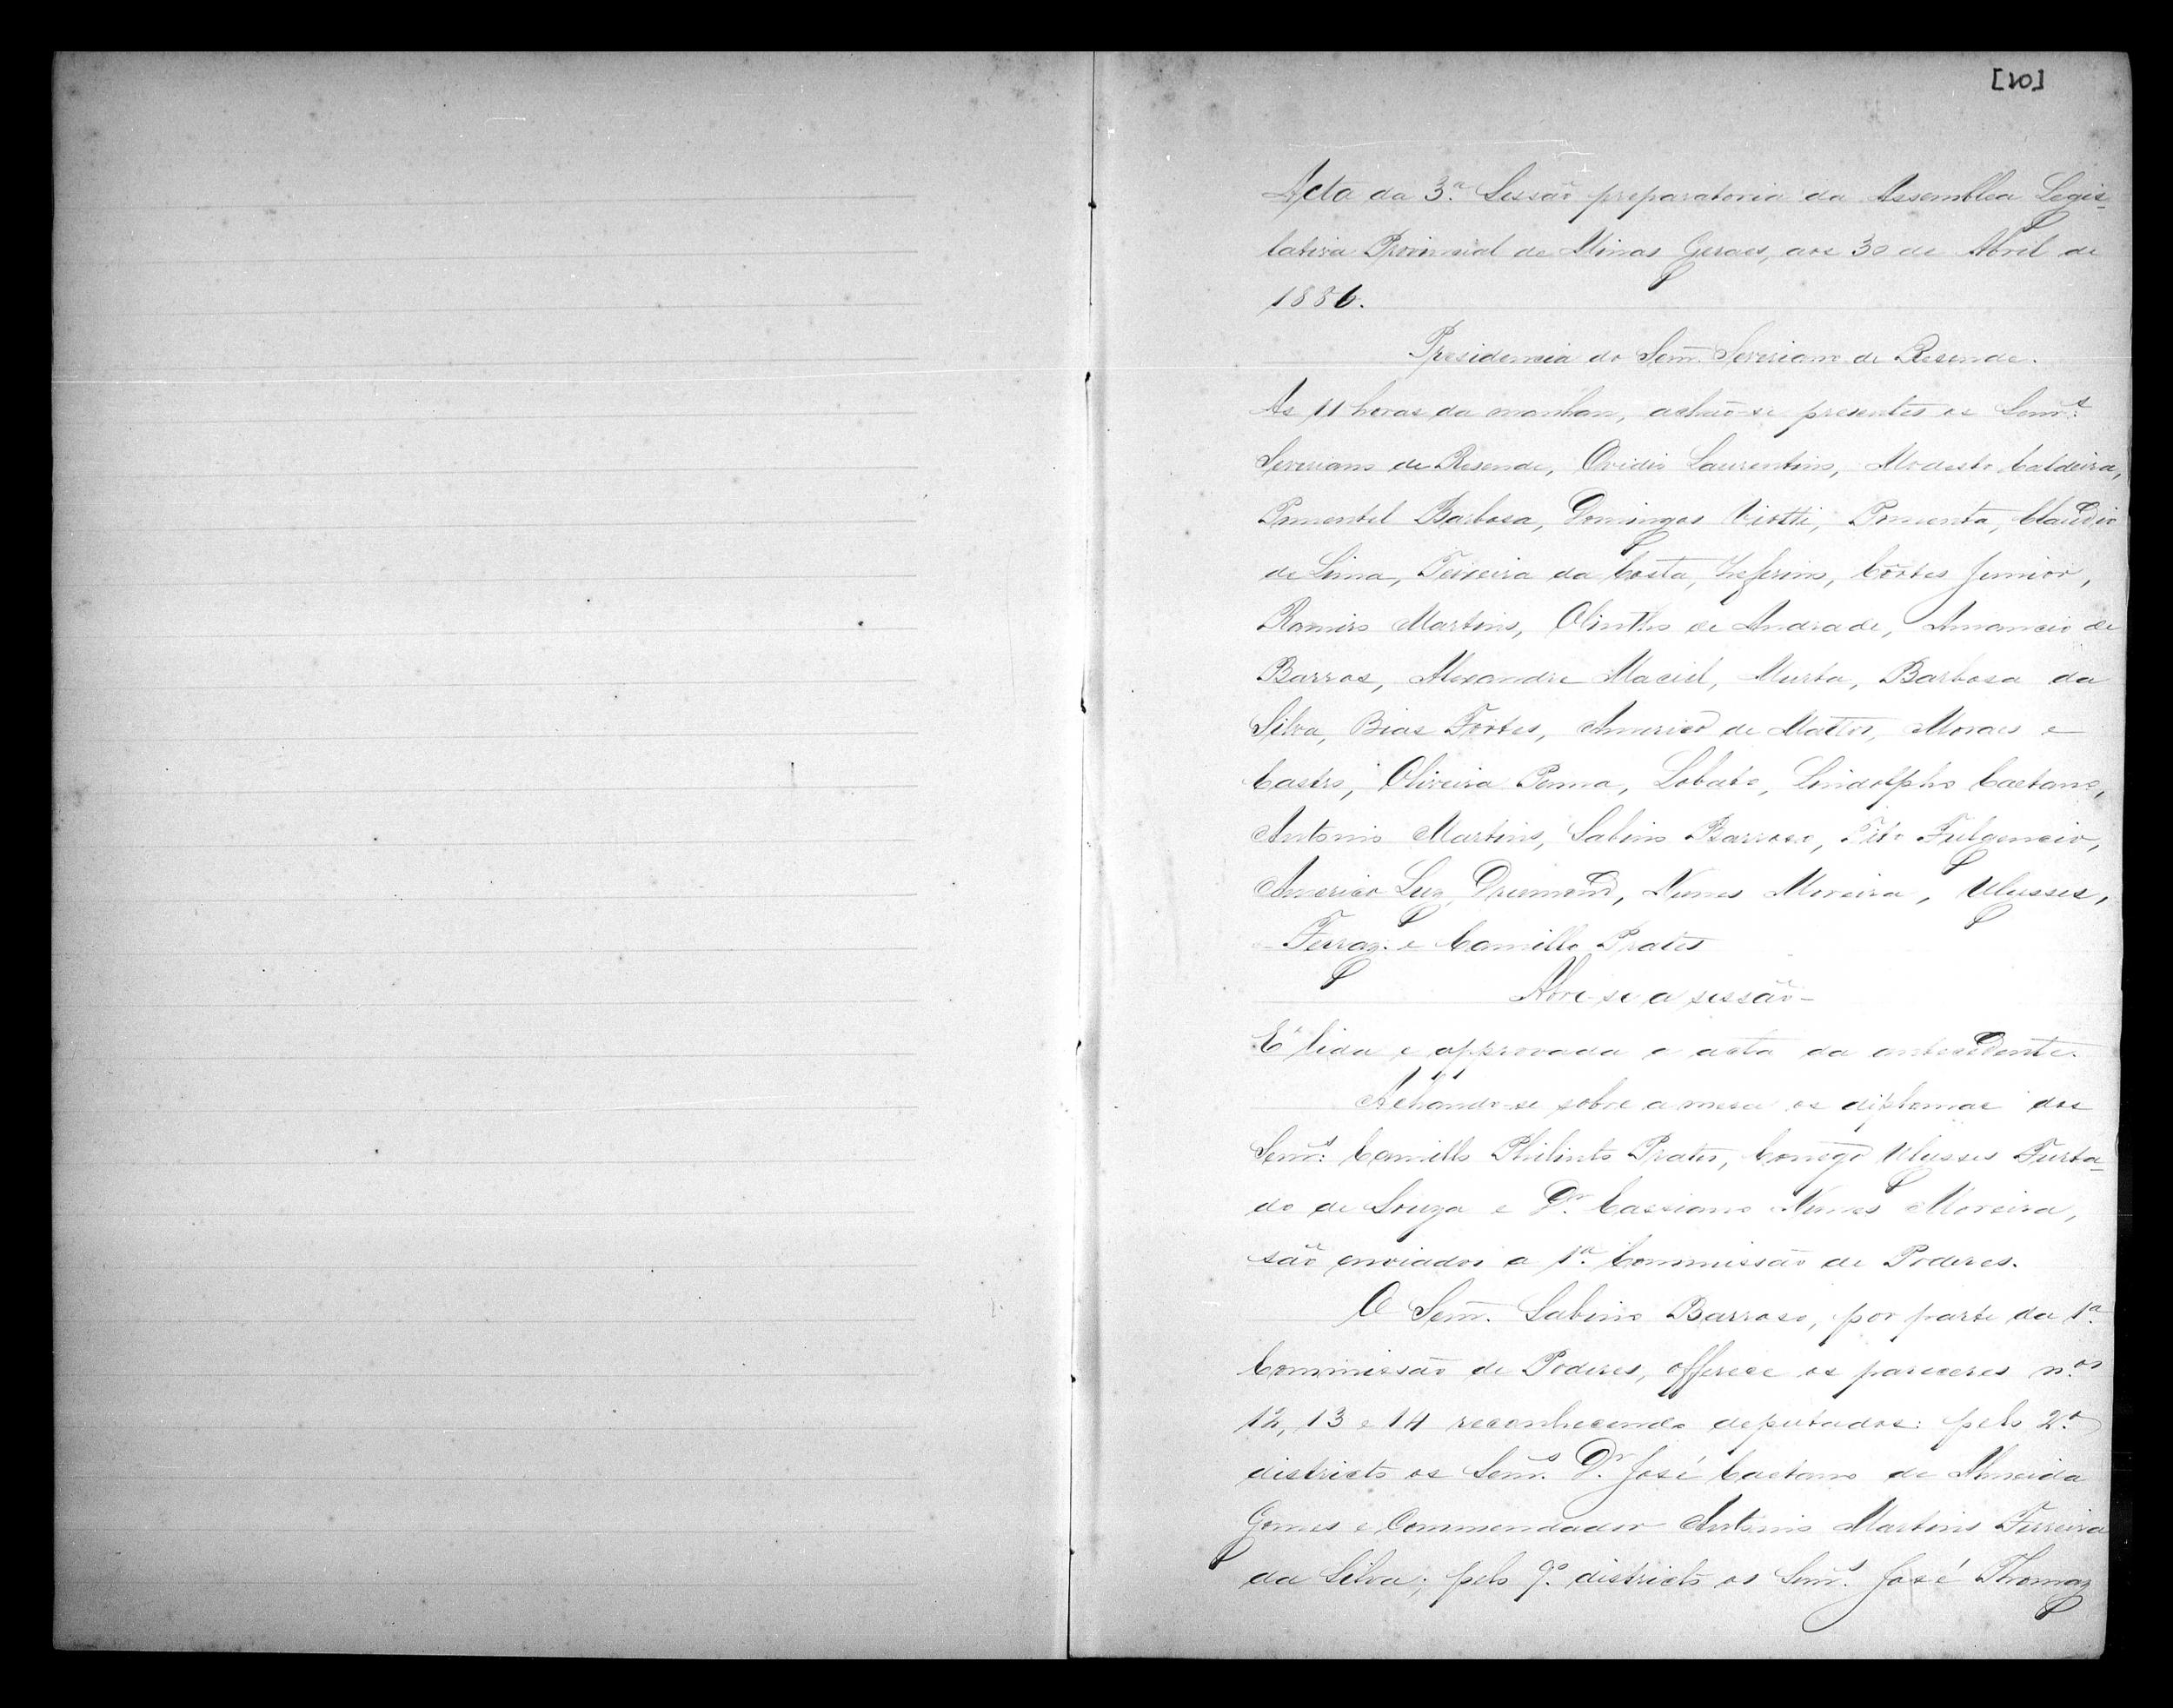 [10]
Acta da 3.ª Sessão preparatoria da Assemblea Legis-
lativa Provincial de Minas Geraes, aos 30 de Abril de
1886.
Presidencia do Senr. Severiano de Resende.
As 11 horas da manhan, achão-se presentes os Senr.s
Severiano de Resende, Ovidio Laurentino, Modesto Caldeira,
Pimentel Barbosa, Domingos Viotti, Pimenta, Claudio
de Lima, Teixeira da Costa, Zeferino, Côrtes Junior,
Ramiro Martins, Olintho de Andrade, Amancio de
Barros, Alexandre Maciel, Murta, Barbosa da
Silva, Bias Fortes, Americo de Mattos, Moraes e
Castro, Oliveira Penna, Lobato, Lindolpho Caetano,
Antonio Martins, Sabino Barroso, Tito Fulgencio,
Americo Luz, Drumond, Nunes Moreira, Ulysses,
Ferraz e Camillo Prates
Abre-se a sessão-
E' lida e approvada a acta da antecedente.
Achando-se sobre a mesa os diplomas dos
Senr.s Camillo Philinto Prates, Conego Ulysses Furta-
do de Souza e Dr. Cassiano Nunes Moreira,
são enviados a 1.ª Commissão de Poderes.
O Senr. Sabino Barroso, por parte da 1.ª
Commissão de Poderes, offerece os pareceres n.os
12, 13 e 14 reconhecendo deputados: pelo 2.º
districto os Senr.s Dr. José Caetano de Almeida
Gomes e Commendador Antonio Martins Ferreira
da Silva; pelo 9.º districto os Senr.s José Thomaz